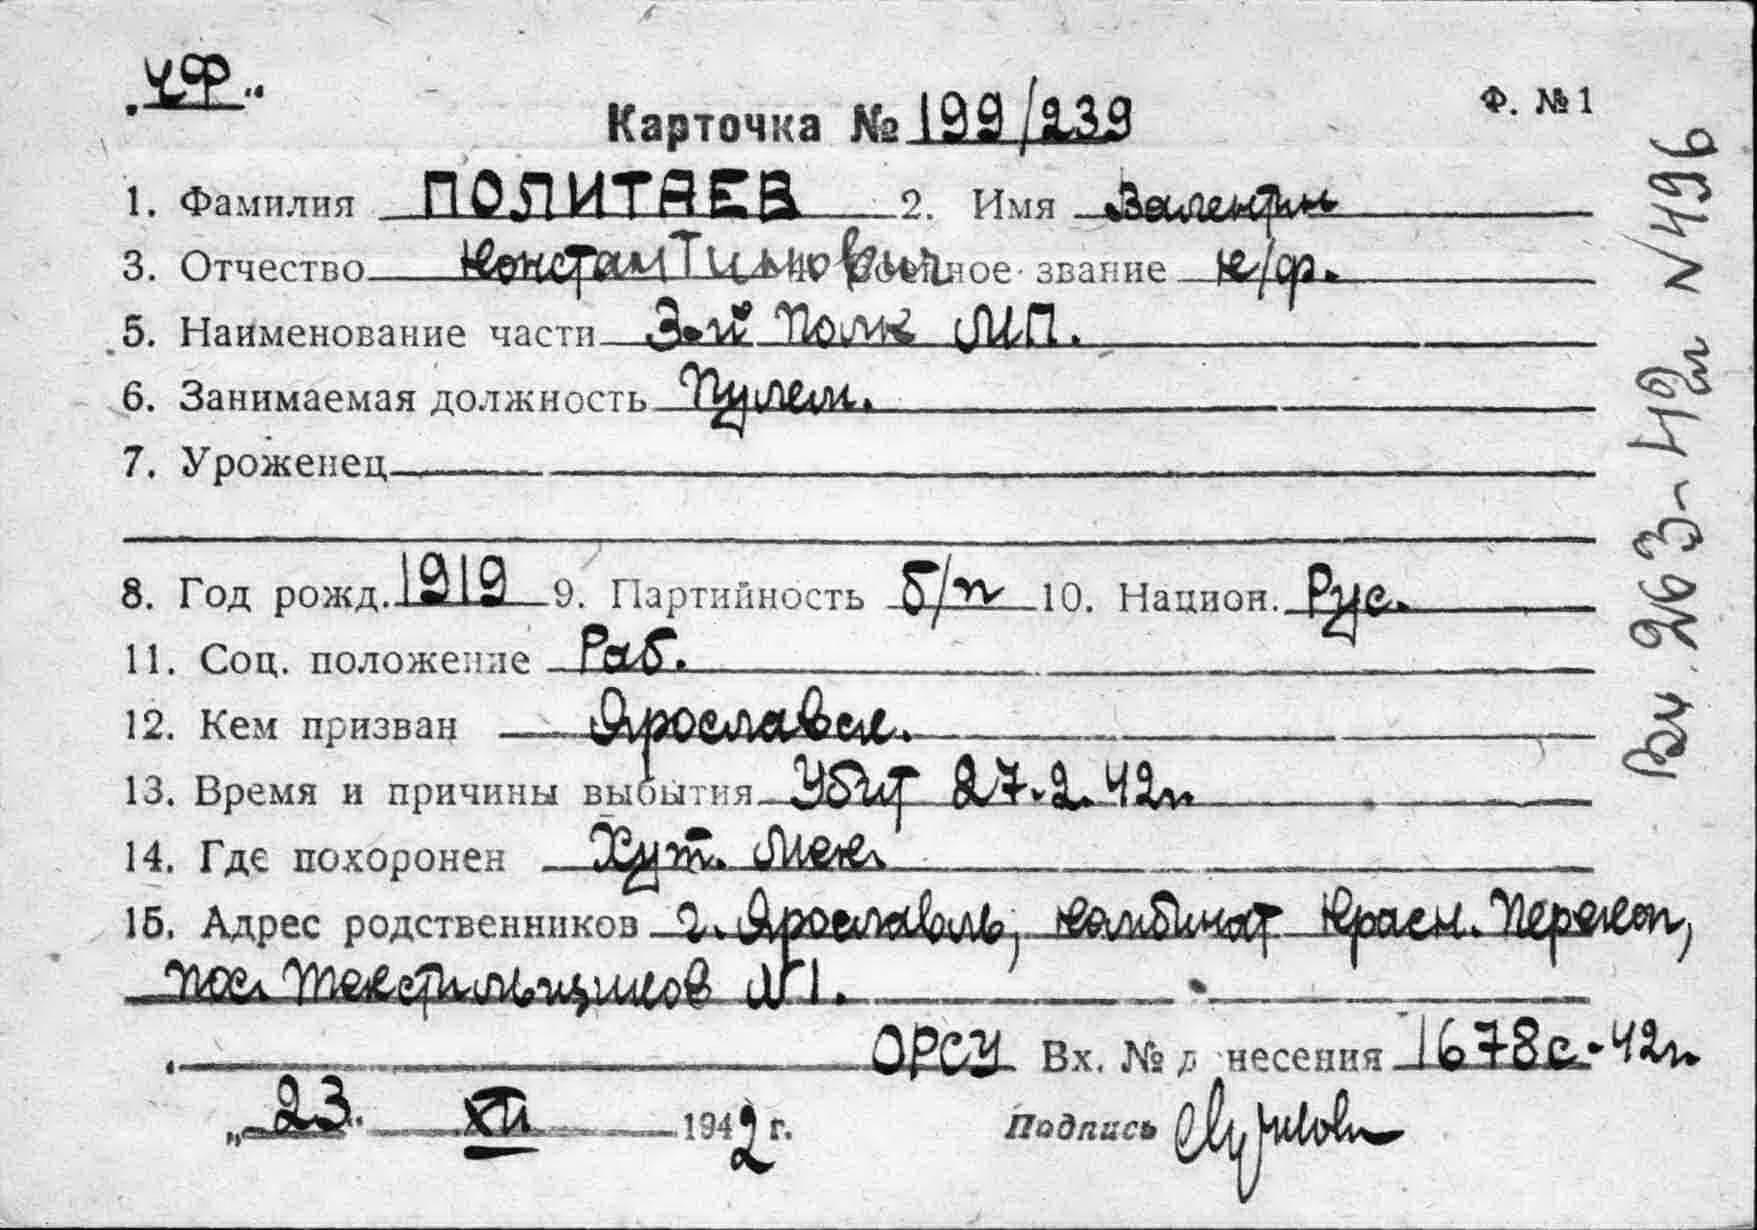 „ЧФ"
Карточка № 199/239
Ф. № 1
1. Фамилия ПОЛИТАЕВ 2. Имя Валентин
3. Отчество Константинович 4. Военное звание к/ф.
5. Наименование части 3-й полк МП.
6. Занимаемая должность Пулем.
7. Уроженец
8. Год рожд. 1919 9. Партийность б/п 10. Национ. Рус.
11. Соц. положение Раб.
12. Кем призван Ярославск.
13. Время и причины выбытия Убит 27.2.42г.
14. Где похоронен Хут. Мек.
15. Адрес родственников г. Ярославль, комбинат Красн. Перекоп,
пос. Текстильщиков №1.
ОРСУ Вх. № донесения 1678с-42г.
„23" XII 1942 г. Подпись
263-49г N496